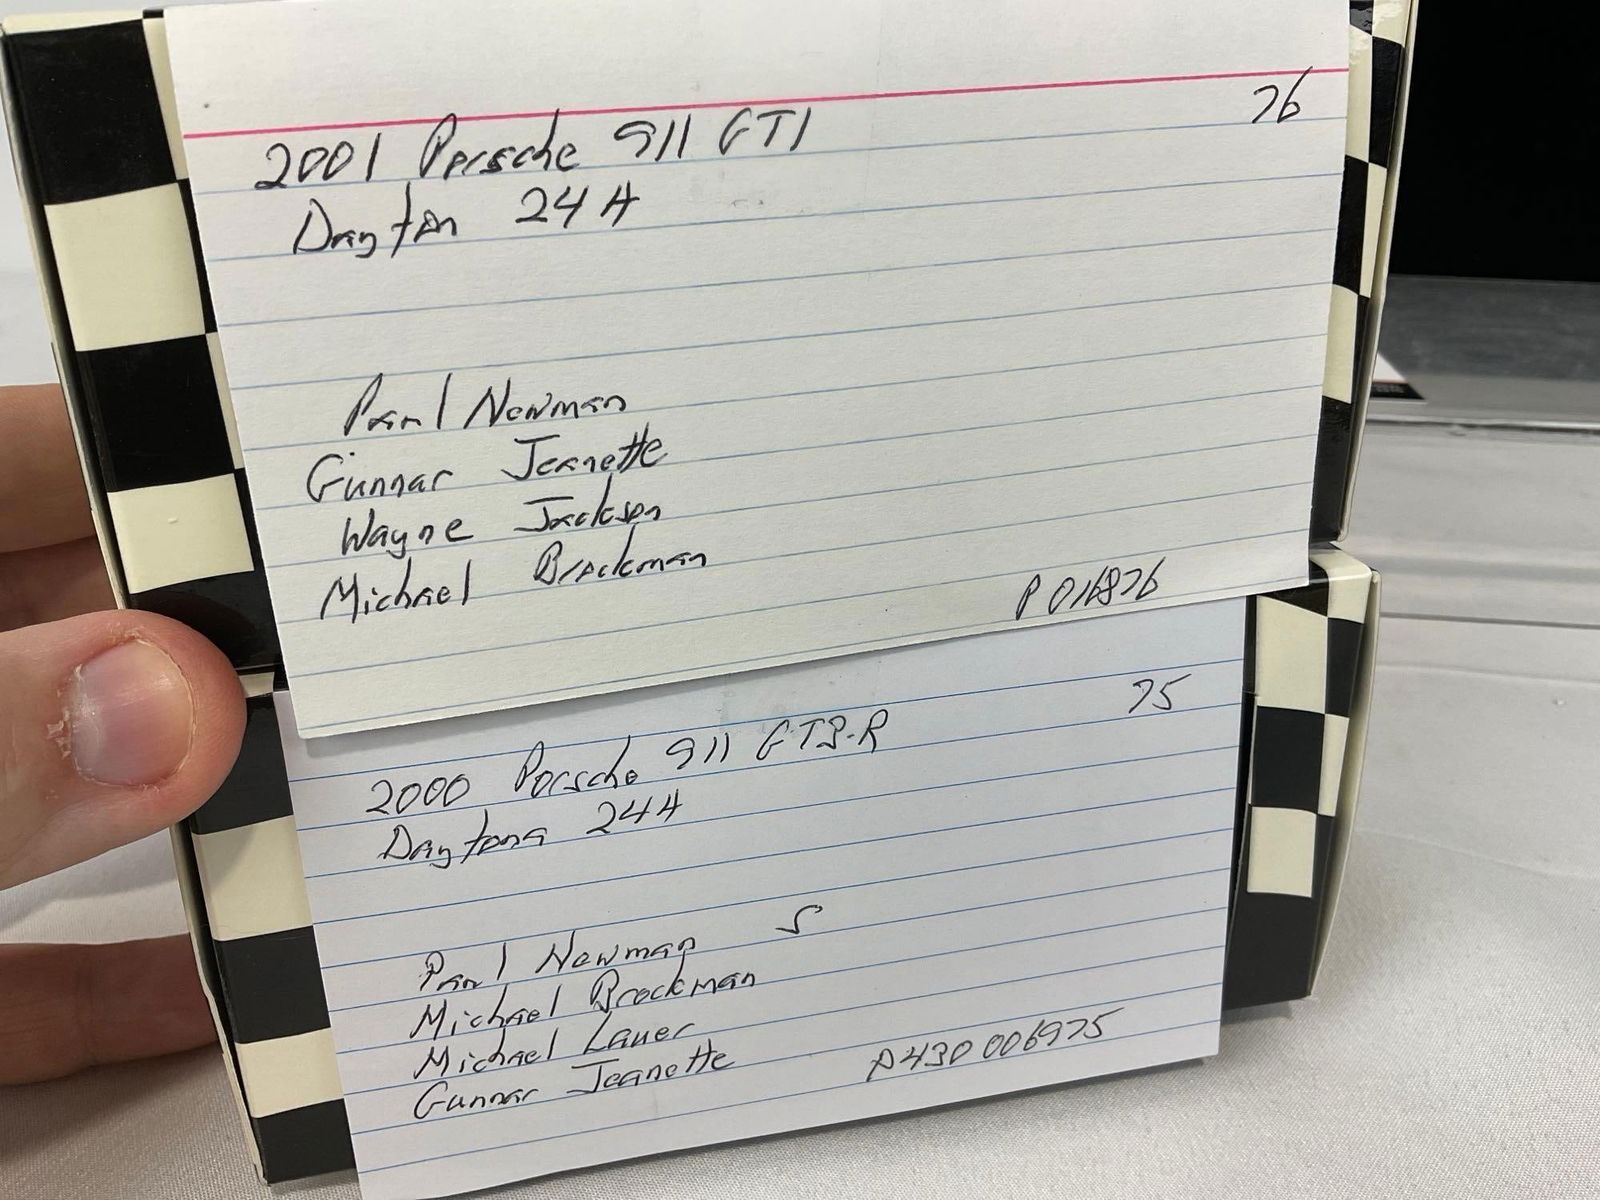 76
2001 Porsche 911 GT1
Dayton 24 H
Paul Newman
Gunnar Jeanette
Wayne Jackson
Michael Brockman
P 016876
75
2000 Porsche 911 GT3-R
Daytona 24 H
Paul Newman S
Michael Brockman
Michael Lauer
Gunnar Jeanette
P430 006975